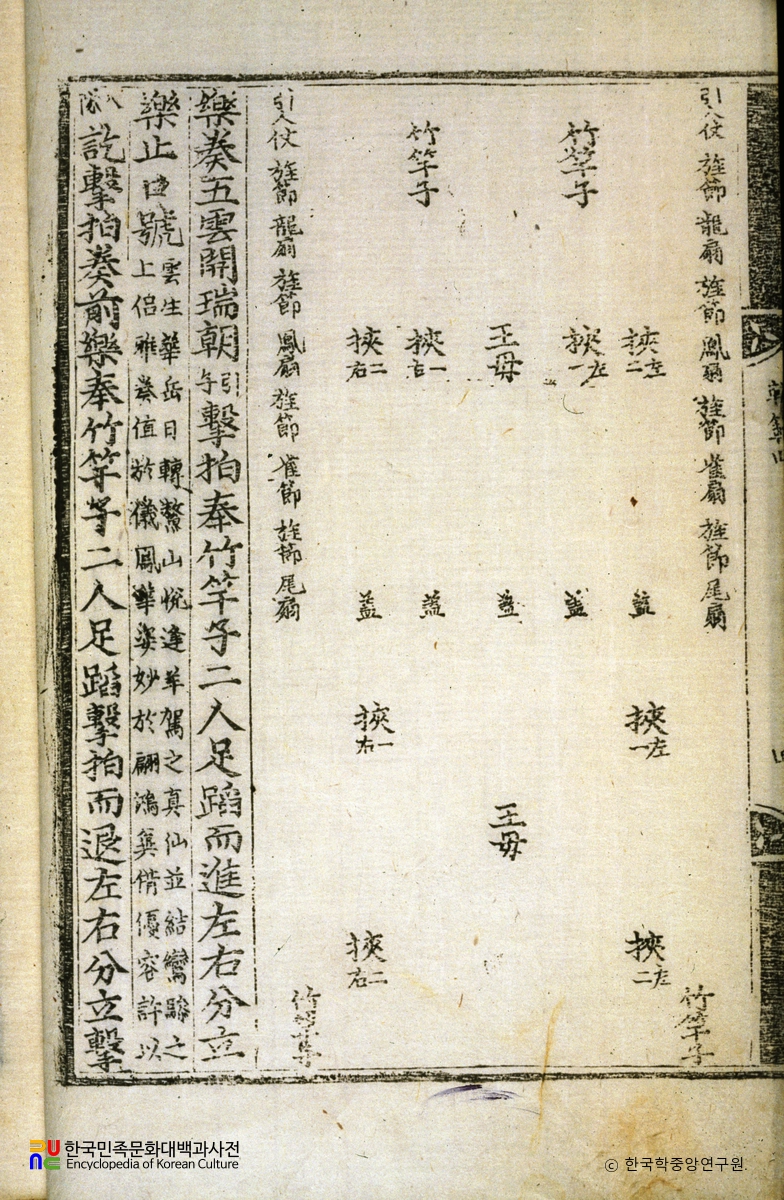 引人仗 旌節 龍扇 旌節 鳳扇 旌節 雀扇 旌節 尾扇
竹竿子
挾左二 蓋 挾左一 挾左二
竹竿子
挾左一 蓋
王母 蓋 王母
竹竿子
挾右一 蓋
挾右二 蓋 挾右一 挾右二
竹竿子
引人仗 旌節 龍扇 旌節 鳳扇 旌節 雀節 旌節 尾扇
樂奏五雲開瑞朝引子擊拍奉竹竿子二人足蹈而進左右分立
樂止口號雲生華岳日轉鰲山悅逢羊駕之真仙並結鸞驂之上侶雅奏值於儀鳳華姿妙於翩鴻冀借優容許以
入隊訖擊拍奏前樂奉竹竿子二人足蹈擊拍而退左右分立擊
한국민족문화대백과사전
Encyclopedia of Korean Culture
ⓒ 한국학중앙연구원.